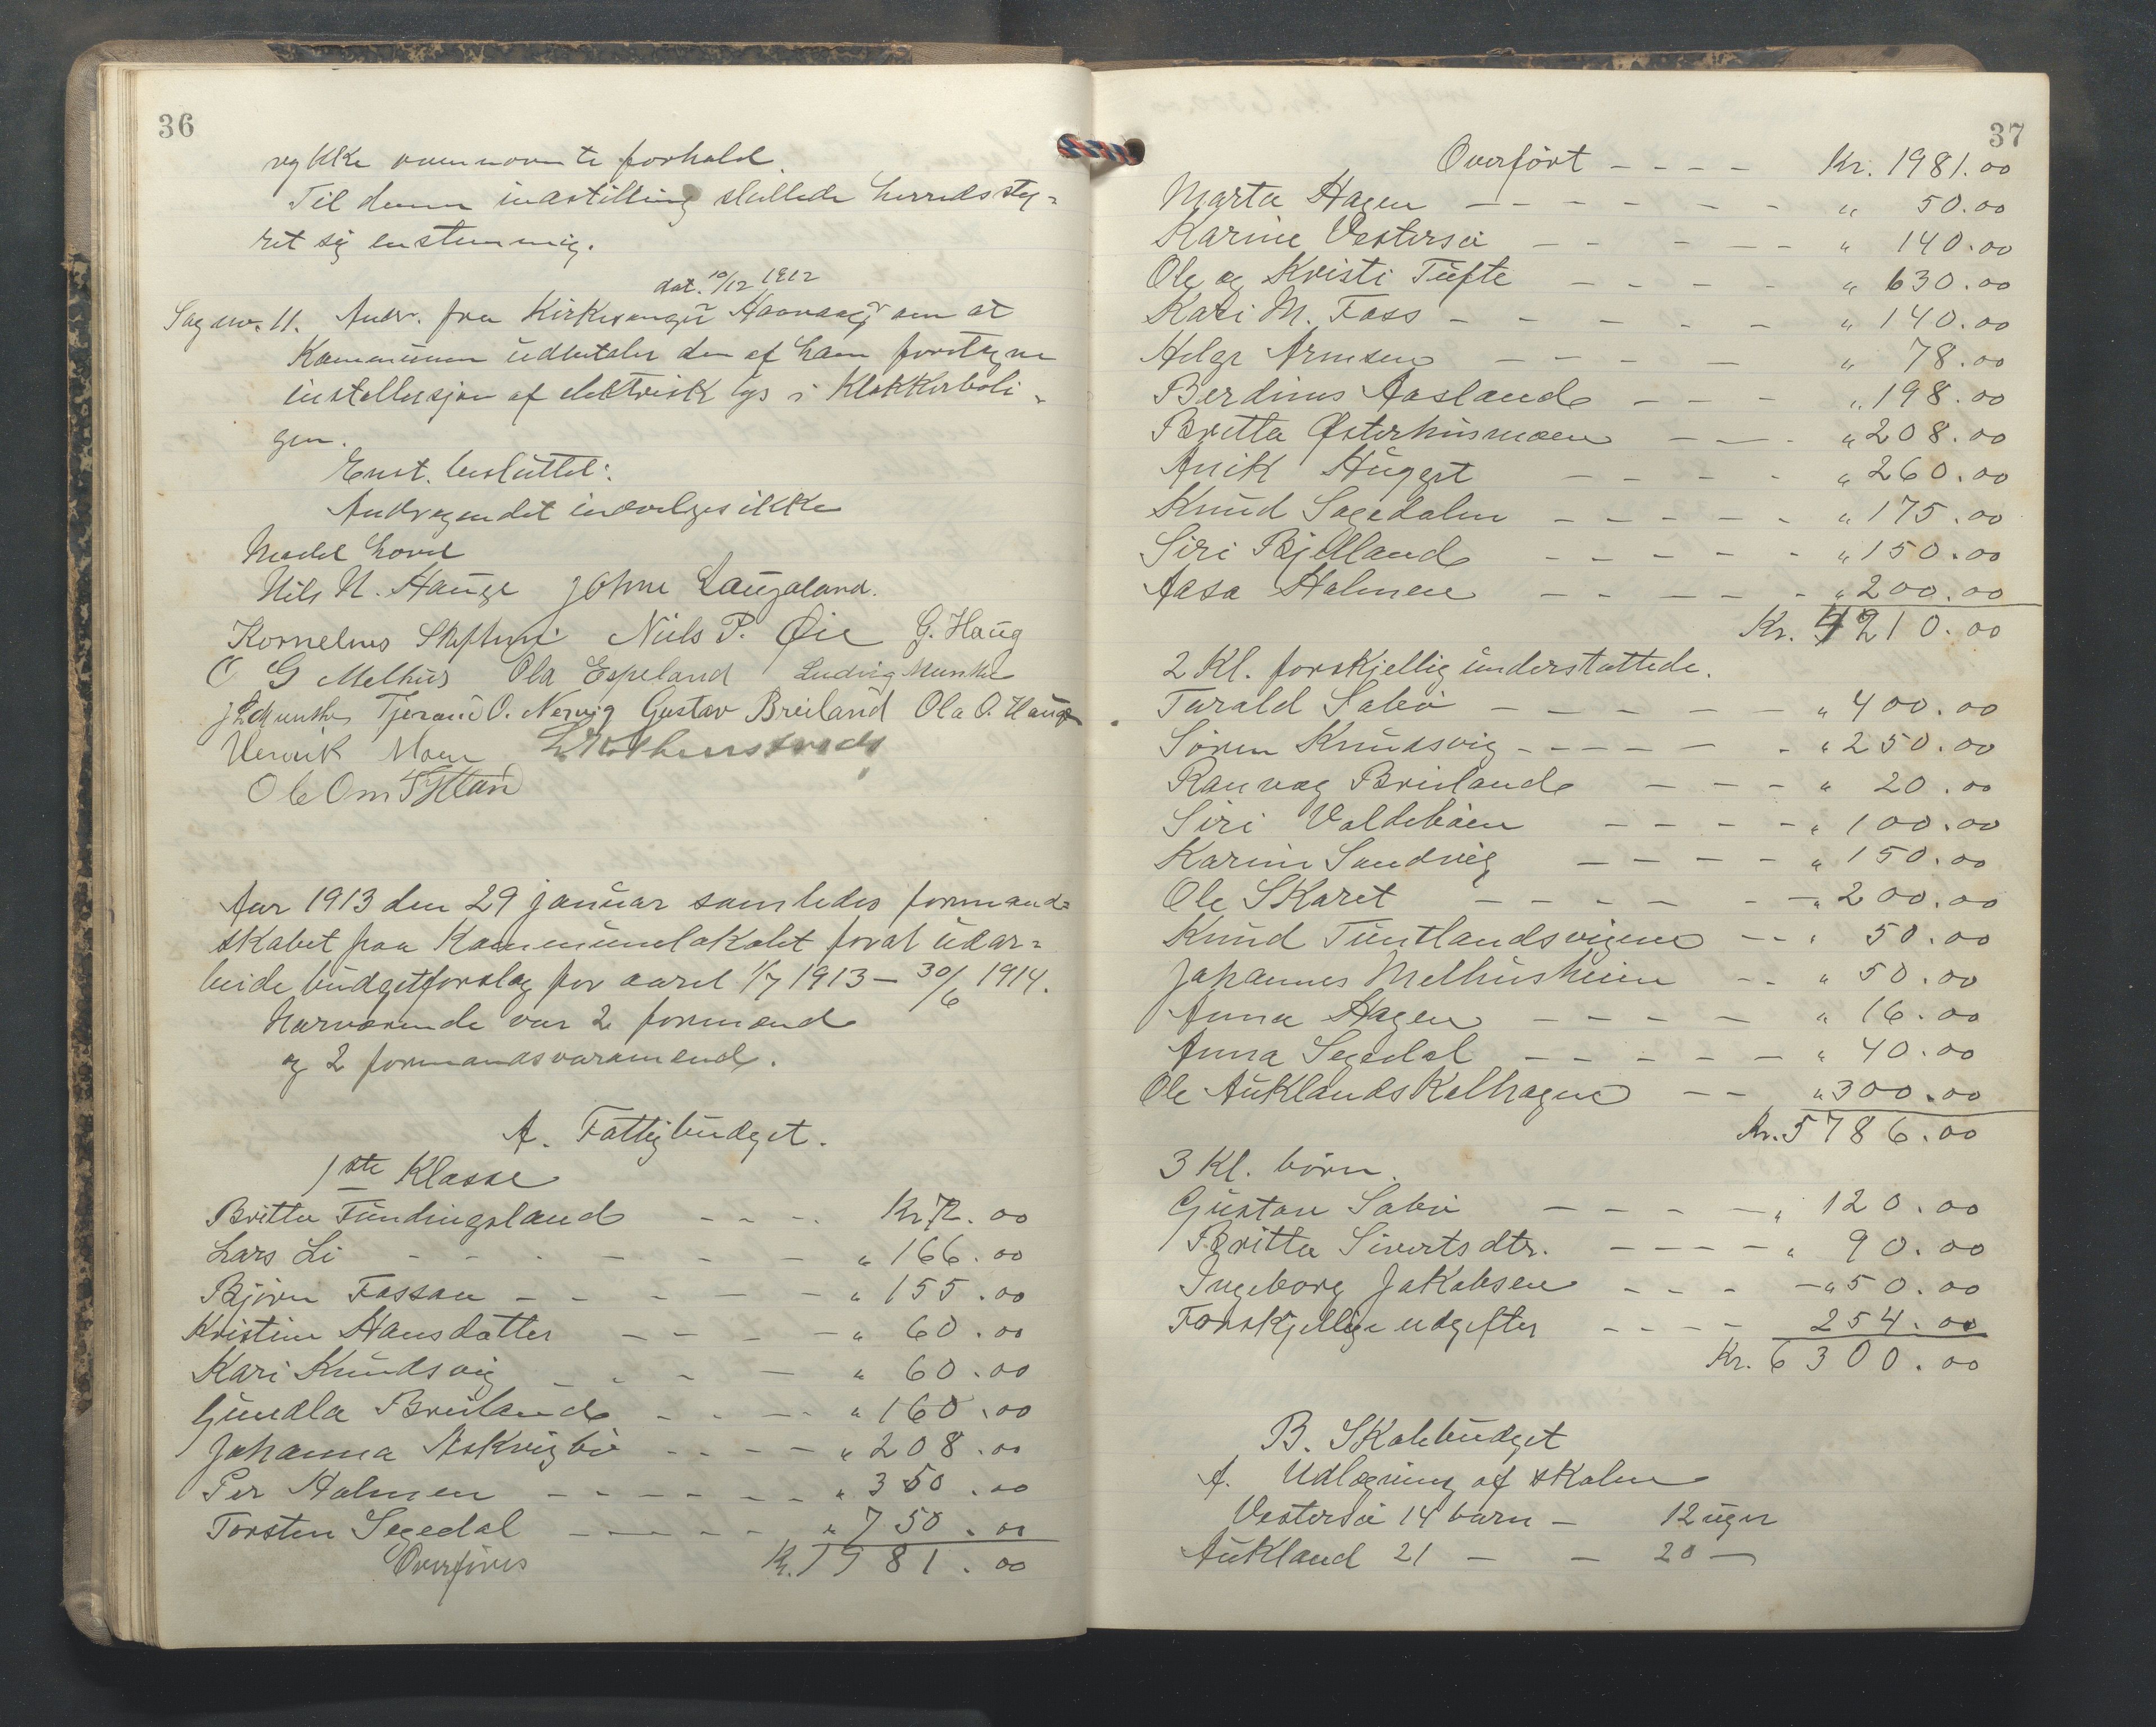 36
rykke ovennevnte forhold
Til denne indstilling sluttede herredssty-
ret sig enstemmig.
dat. 10/12 1912
Sag nr. 11. Andr. fra Kirkesanger Haavaag om at
Kommunen udbetaler den af ham foretagne
installasjon af elektrisk lys i Klokkerboli-
gen.
Enst. besluttet:
Andragendet indvilges ikke
Mødet hævet
Nils N. Hauge John Laugaland.
Kornelius Niels P. Øie G. Haug
O G Melhus Ola Espeland Ludvig Munthe
J L Munthe Tjerand O. Nervig Gustav Breiland Ola O. Hauge
Henrik Moen
Ole Om
Aar 1913 den 29 januar samledes formand-
skabet paa Kommunelokalet forat udar-
beide budgetforslag for aaret 1/7 1913 – 30/6 1914.
Nærværende var 2 formænd
og 2 formandsvaramænd.
A. Fattigbudget.
1ste Klasse
Britta Tundingsland - - - - Kr. 72.00
Lars Li - - - - - - - " 166.00
Bjørn Fossan - - - - - - " 155.00
Kristine Hansdatter - - - - " 60.00
Kari Knudsvig - - - - " 60.00
Gundla Breiland - - - - " 160.00
Johanna Askvigbø - - - - " 208.00
Per Holmen - - - - - - - " 350.00
Torsten Segedal - - - - - " 750.00
Overføres Kr. 1981.00
37
Overført - - - - Kr. 1981.00
Marta Hagen - - - - - - - " 50.00
Karine Vestersø - - - - - - " 140.00
Ole og Kristi Tufte - - - - " 630.00
Kari M. Foss - - - - - - " 140.00
Helge Arnesen - - - - - " 78.00
Berdinus Aasland - - - " 198.00
Britta Østerhusmoen - - - " 208.00
Anik - - - - " 260.00
Knud Sagedalen - - - - - " 175.00
Siri Bjelland - - - - - " 150.00
Aasa Holmen - - - - - " 200.00
Kr. 4210.00
2 Kl. forskjellig understøttede.
Tarald Sabø - - - - - - " 400.00
Søren Knudsvig - - - - - - " 250.00
Ranvag Breiland - - - " 20.00
Siri Valdebøen - - - - " 100.00
Karine Sandvig - - - - " 150.00
Ole Skaret - - - - - - " 200.00
Knud Tuntlandsvigen - - " 50.00
Johannes Melhusheien - - " 50.00
Anna Hagen - - - - - " 16.00
Anna Segedal - - - - - - " 40.00
Ole Auklandskolhagen - - " 300.00
Kr. 5786.00
3 Kl. børn.
Gustav Sabø - - - - - " 120.00
Britta Sivertsdtr. - - - - " 90.00
Ingeborg Jakobsen - - - - " 50.00
Forskjellige udgifter - - - - 254.00
Kr. 6300.00
B. Skolebudget
A. Udlægning af skolen
Vestersø 14 barn - 12 uger
Aukland 21 - - 20 -